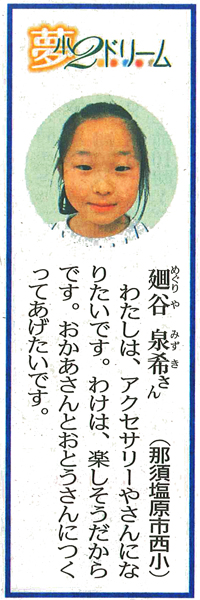 夢小2ドリーム
廽谷 泉希さん
めぐりや みずき
(那須塩原市西小)
わたしは、アクセサリーやさんにな
りたいです。わけは、楽しそうだから
です。おかあさんとおとうさんにつく
ってあげたいです。